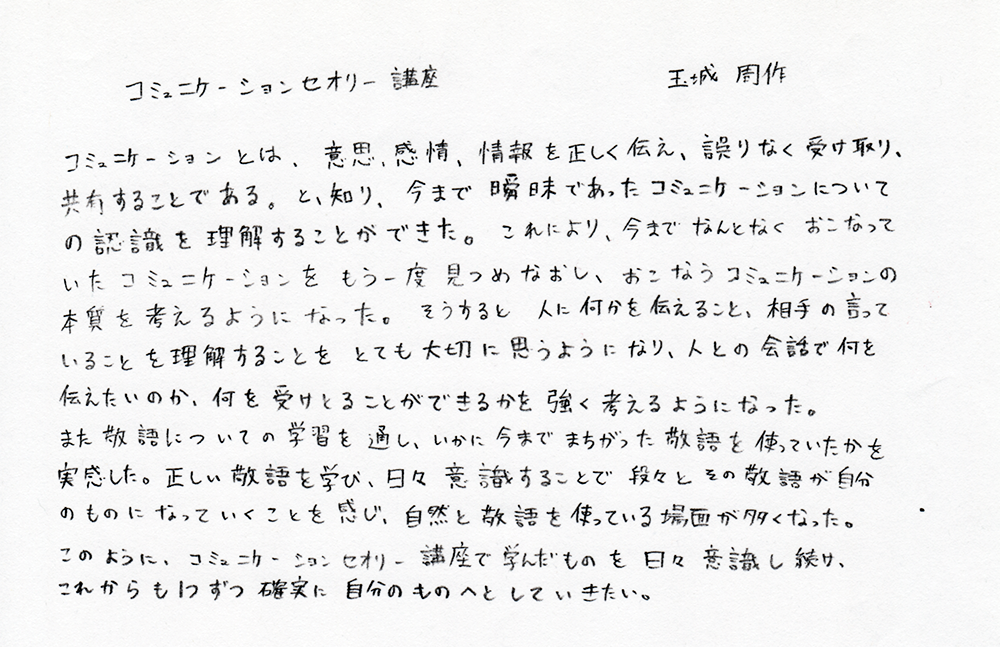 コミュニケーションセオリー講座 玉城 周作
コミュニケーションとは、意思、感情、情報を正しく伝え、誤りなく受け取り、
共有することである。と、知り、今まで曖昧であったコミュニケーションについて
の認識を理解することができた。これにより、今までなんとなくおこなって
いたコミュニケーションをもう一度見つめなおし、おこなうコミュニケーションの
本質を考えるようになった。そうすると人に何かを伝えること、相手の言って
いることを理解することをとても大切に思うようになり、人との会話で何を
伝えたいのか、何を受けとることができるかを強く考えるようになった。
また敬語についての学習を通し、いかに今までまちがった敬語を使っていたかを
実感した。正しい敬語を学び、日々意識することで段々とその敬語が自分
のものになっていくことを感じ、自然と敬語を使っている場面が多くなった。
このように、コミュニケーションセオリー講座で学んだものを日々意識し続け、
これからも1つずつ確実に自分のものへとしていきたい。